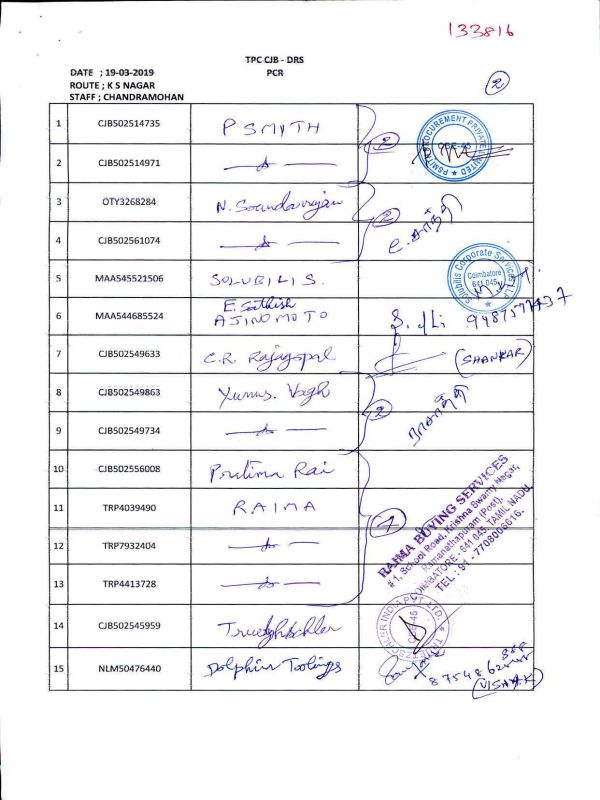 133816
TPC CJB - DRS
DATE ; 19-03-2019 PCR
ROUTE ; K S NAGAR
STAFF ; CHANDRAMOHAN
2
1 CJB502514735 P SMITH 2
PSMITH PROCUREMENT PRIVATE LIMITED
CBE-45
2 CJB502514971
3 OTY3268284 N. Soundarrajan 2
4 CJB502561074
5 MAA545521506 SOLUBILIS.
Solubilis Corporate Services
Coimbatore
641 045
6 MAA544685524 E. Sathish
AJINOMOTO
7 CJB502549633 C.R. Rajagopal (SHANKAR)
8 CJB502549863 Yunus. Vagh 2
9 CJB502549734
10 CJB502556008 Pratima Rai
11 TRP4039490 RAIMA
12 TRP7932404
13 TRP4413728
RAIMA BUYING SERVICES
# 1, School Road, Krishna Swamy Nagar,
Ramanathapuram (Post),
COIMBATORE - 641 045, TAMIL NADU.
TEL : 91 - 7708006616.
14 CJB502545959
CBE-45
15 NLM50476440 Dolphin Toolings